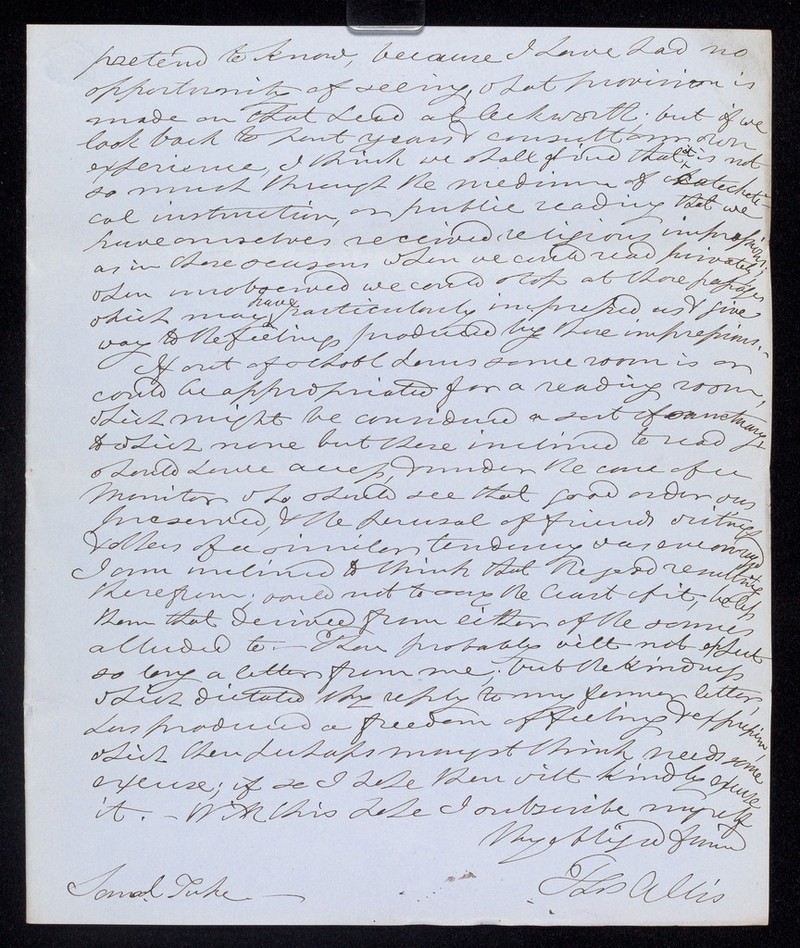 pretend to know, because I have had no
opportunity of seeing what provision is
made on that head at Ackworth: but if we
look back to past years & consult our own
experience, I think we shall find that it is not
so much through the medium of catecheti-
cal instruction, or public reading that we
have ourselves received religious impressions;
as in those seasons when we could read privately,
when unobserved we could stop at those passages
which may have particularly impressed us & give
way to the feelings produced by those impressions. -
If out of school hours some room is or
could be appropriated for a reading room,
which might be considered a sort of sanctuary,
to which none but those inclined to read
should have access, & under the care of a
Monitor who should see that good order was
preserved, & the perusal of friends writings
& others of a similar tendency was encouraged
I am inclined to think that the good resulting
therefrom, would not to say the least of it, be less
than that derived from either of the sources
alluded to. - Thou probably wilt not expect
so long a letter from me; but the kindness
which dictated thy reply to my former letter,
has produced a freedom of feeling & expression,
which thou perhaps mayst think needs some
excuse; if so I hope thou wilt kindly excuse
it. - With this hope I subscribe myself
Thy obliged friend
Thos Allis
Saml Tuke